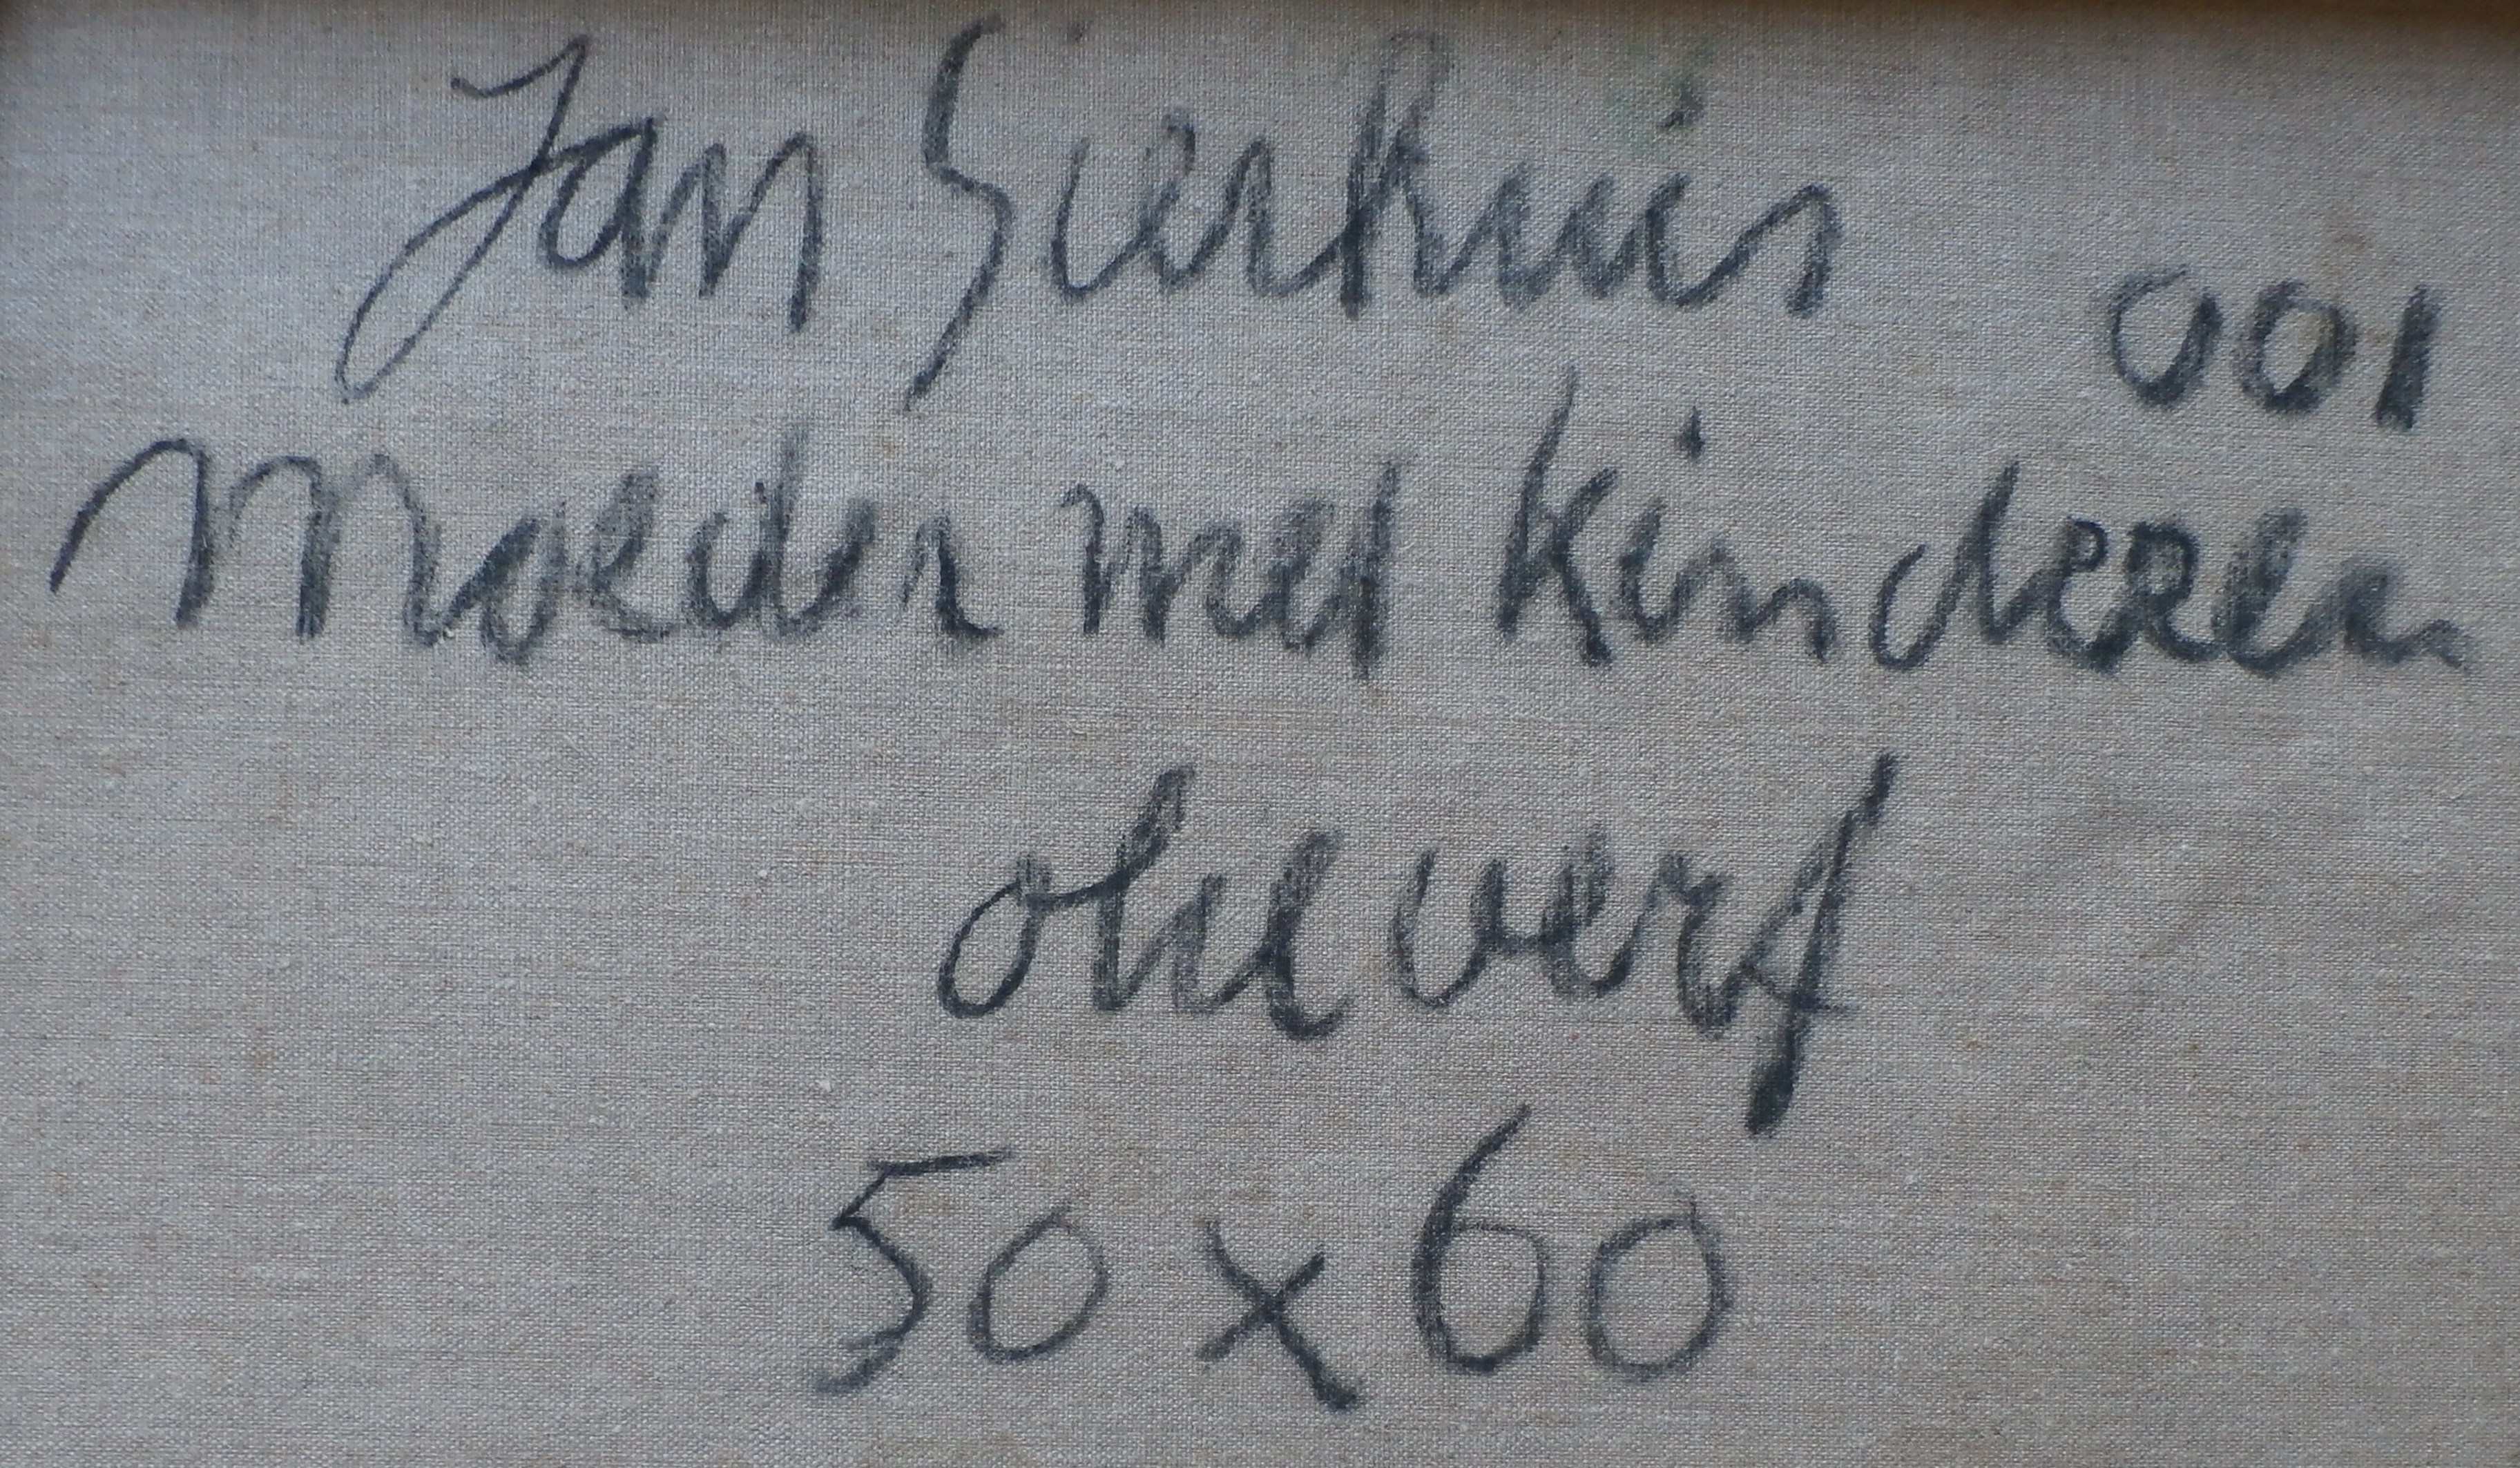 Jan Sierhuis
001
Moeder met kinderen
olieverf
50 x 60